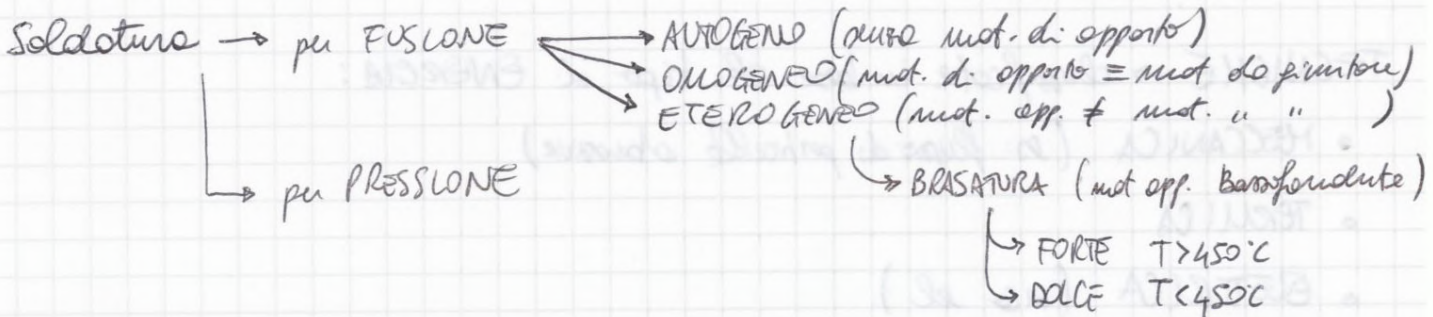 Saldatura → per FUSIONE → AUTOGENO (senza mat. di apporto)
→ OMOGENEO (mat. di apporto ≡ mat da giuntare)
→ ETEROGENEO (mat. app. ≠ mat. " " )
→ BRASATURA (mat app. bassofondente)
→ FORTE T>450°C
→ DOLCE T<450°C
→ per PRESSIONE